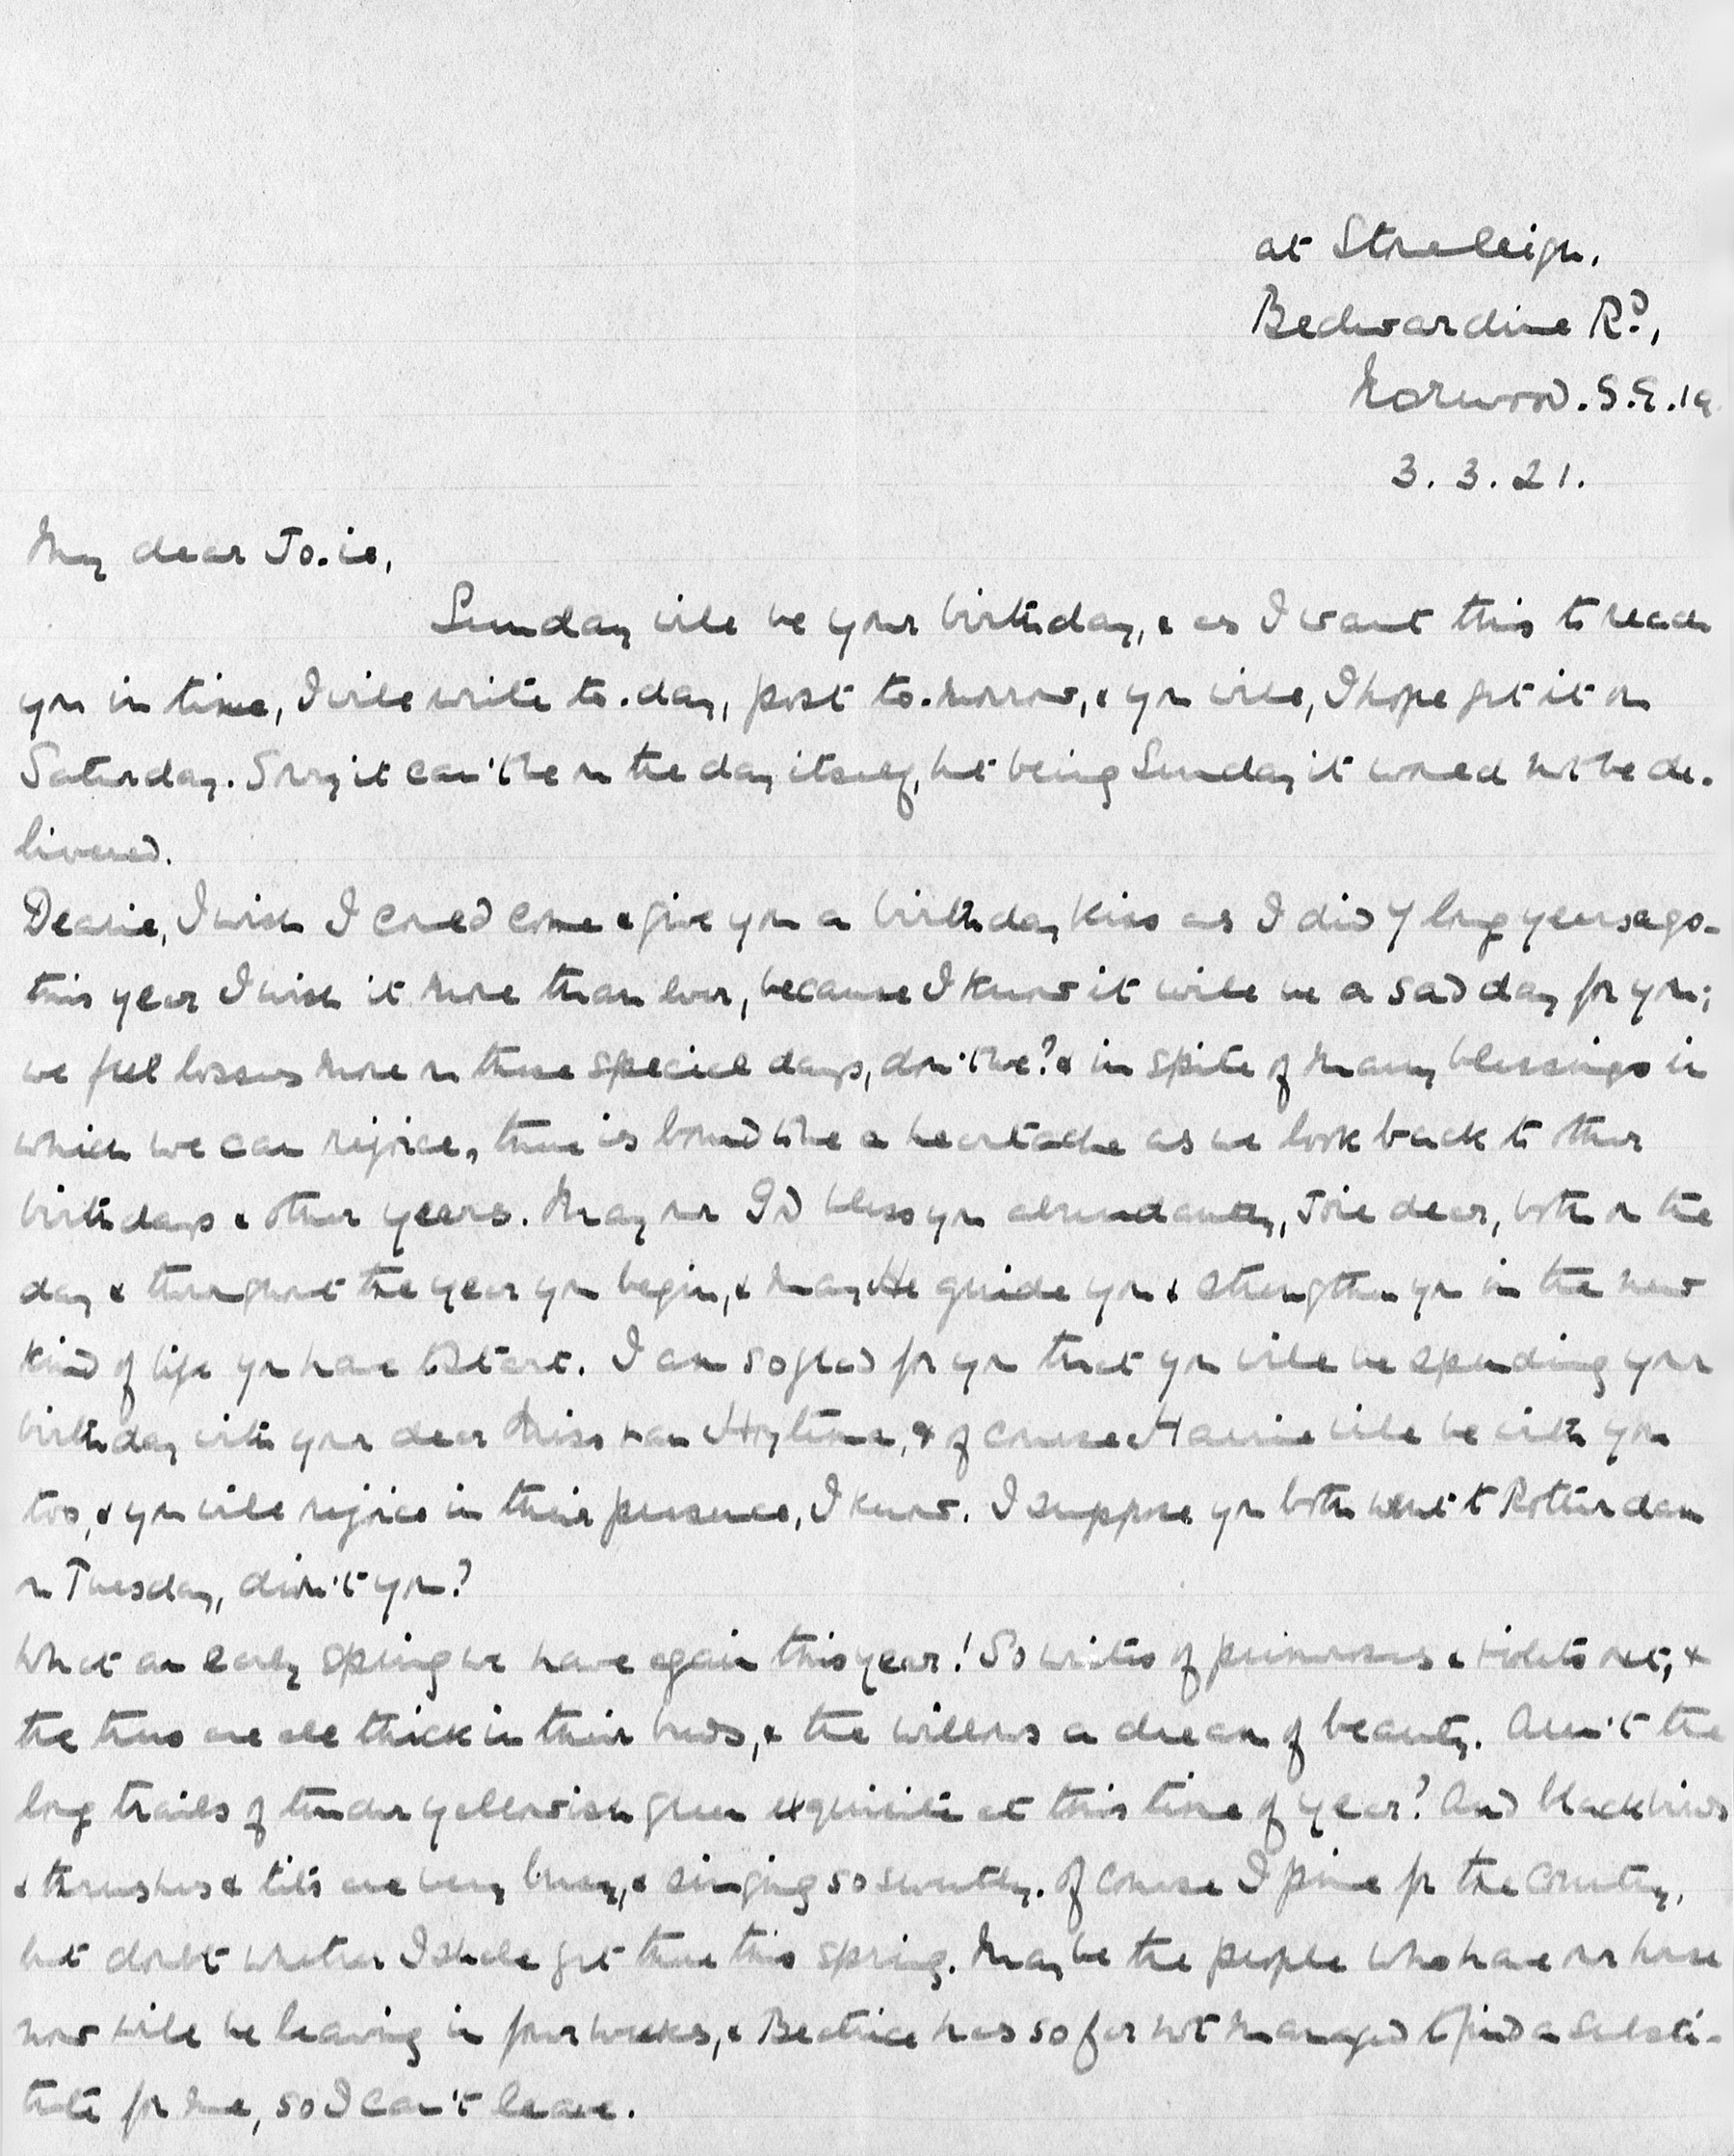 at Stoneleigh,
Bedwardine Rd.,
Norwood. S.E.19
3. 3. 21.
My dear Jo.ie,
Sunday will be your birthday, & as I want this to reach
you in time, I will write to-day, post to-morrow, & you will, I hope get it on
Saturday. Sorry it can't be on the day itself, but being Sunday it would not be de-
livered.
Dearie, I wish I could come & give you a birthday kiss as I did 7 long years ago -
this year I wish it more than ever, because I know it will be a sad day for you;
we feel losses more on these special days, don't we? & in spite of many blessings in
which we can rejoice, there is bound to be a heartache as we look back to other
birthdays & other years. May our God bless you abundantly, Joie dear, both on the
day & throughout the year you begin, & may He guide you & strengthen you in the new
kind of life you have to start. I am so glad for you that you will be spending your
birthday with your dear Miss van & of course will be with you
too, & you will rejoice in their presence, I know. I suppose you both went to Rotterdam
on Tuesday, didn't you?
What an early spring we have again this year! So writes of primroses & violets out, &
the trees are all thick in their buds, & the willows a dream of beauty. Aren't the
long trails of tender yellowish green exquisite at this time of year? And blackbirds
& thrushes & tits are very busy, & singing so sweetly. Of course I pine for the country,
but doubt whether I shall get there this spring. Maybe the people who have our house
now will be leaving in four weeks, & Beatrice has so far not managed to find a substi-
tute for me, so I can't leave.